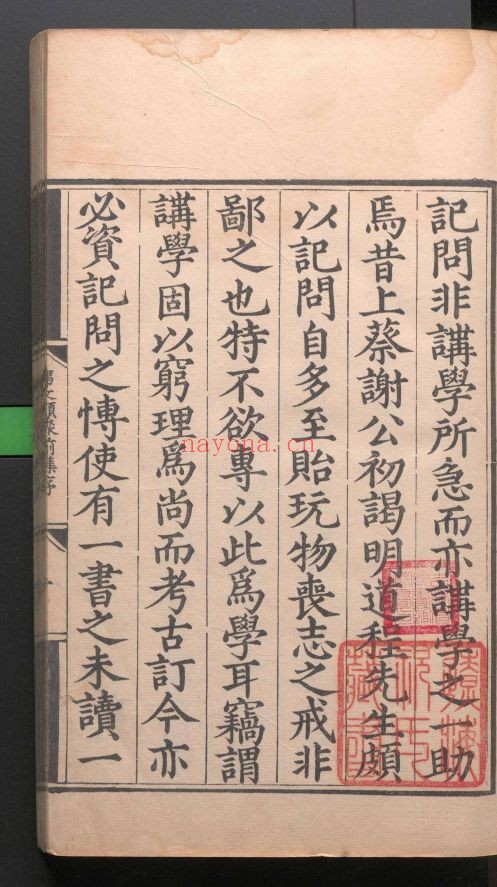 記問非講學所急而亦講學之一助
焉昔上蔡謝公初謁明道程先生頗
以記問自多至貽玩物喪志之戒非
鄙之也特不欲專以此爲學耳竊謂
講學固以窮理爲尚而考古訂今亦
必資記問之博使有一書之未讀一
nayona.cn